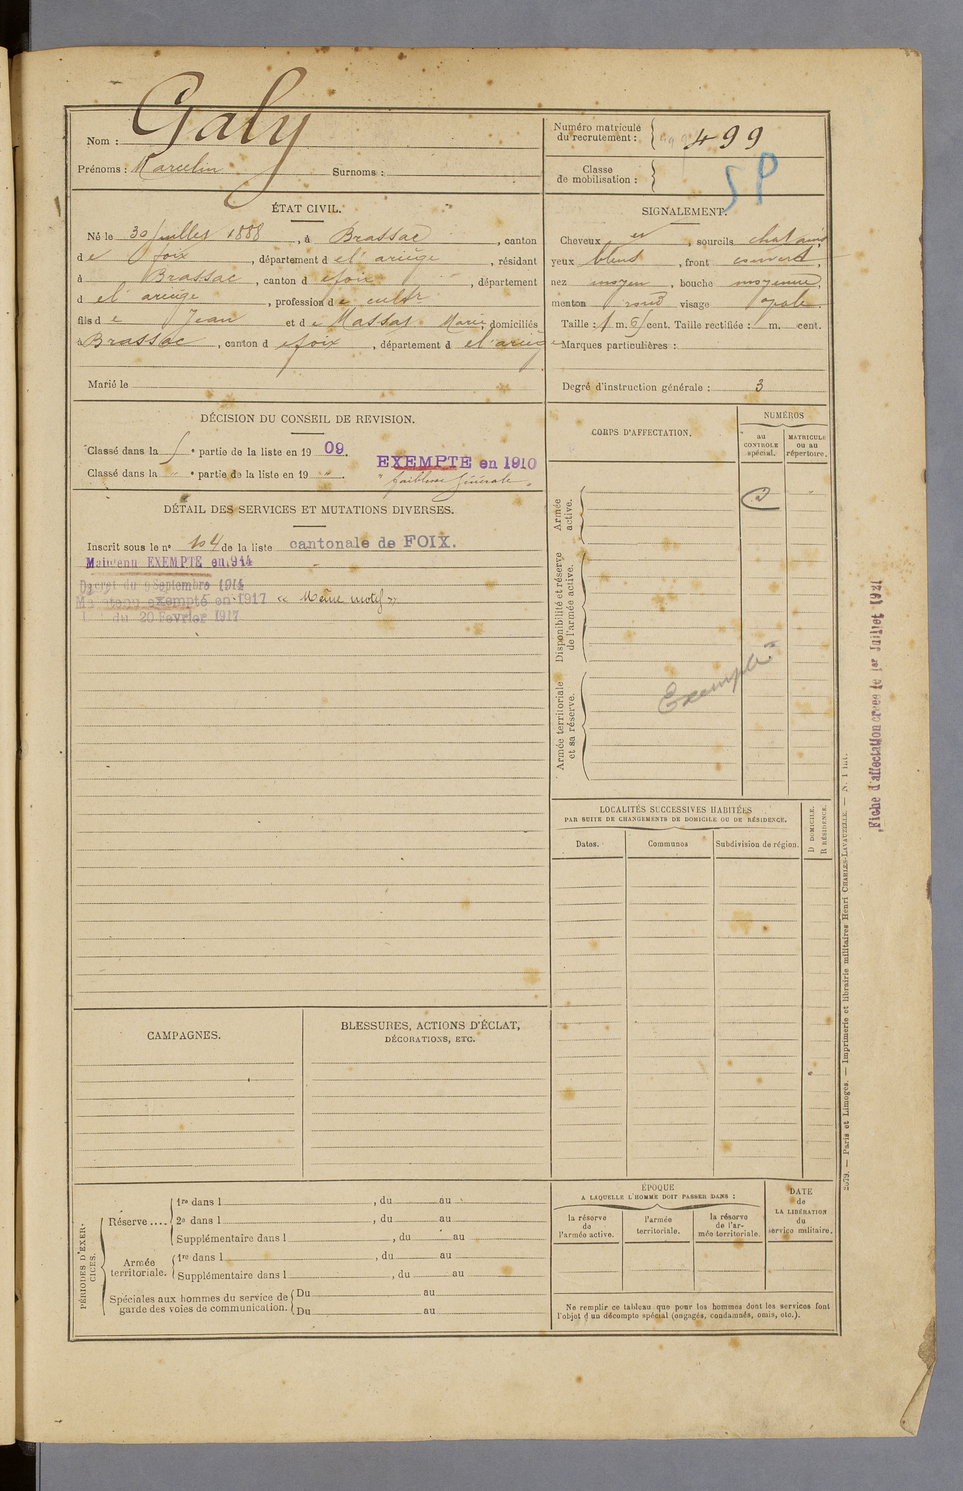 Nom : Galy
Prénoms : Marcelin Surnoms :
Numéro matricule
du recrutement : 499
Classe
de mobilisation :
SP
ÉTAT CIVIL.
Né le 30 Juillet 1888, à Brassac, canton
de foix, département de l'ariège, résidant
à Brassac, canton de foix, département
de l'ariège, profession de cultr
fils de Jean et de Massat Marie, domiciliés
à Brassac, canton de foix, département de l'ariège
Marié le
SIGNALEMENT.
Cheveux et, sourcils chatains
yeux bleus, front couvert,
nez moyen, bouche moyenne,
menton rond visage ovale.
Taille : 1 m. cent. Taille rectifiée : m. cent.
Marques particulières :
Degré d'instruction générale : 3
DÉCISION DU CONSEIL DE REVISION.
Classé dans la e partie de la liste en 1909.
Classé dans la " e partie de la liste en 19 ".
EXEMPTÉ en 1910
" faiblesse générale "
DÉTAIL DES SERVICES ET MUTATIONS DIVERSES.
Inscrit sous le no 104 de la liste cantonale de FOIX.
Maintenu EXEMPTÉ en 1914
Décret du 9 Septembre 1914
Maintenu exempté en 1917 « Même motif »
du 20 Février 1917
CORPS D'AFFECTATION.
NUMÉROS
au
CONTROLE
spécial.
MATRICULE
ou au
répertoire.
Armée
active.
Disponibilité et réserve
de l'armée active.
Armée territoriale
et sa réserve.
Exempté
LOCALITÉS SUCCESSIVES HABITÉES
PAR SUITE DE CHANGEMENTS DE DOMICILE OU DE RÉSIDENCE.
Dates.
Communes
Subdivision de région.
D DOMICILE.
R RÉSIDENCE.
CAMPAGNES.
BLESSURES, ACTIONS D'ÉCLAT,
DÉCORATIONS, ETC.
PÉRIODES D'EXER-
CICES.
Réserve....
1re dans l , du au
2e dans l , du au
Supplémentaire dans l , du au
Armée
territoriale.
1re dans l , du au
Supplémentaire dans l , du au
Spéciales aux hommes du service de
garde des voies de communication.
Du au
Du au
ÉPOQUE
A LAQUELLE L'HOMME DOIT PASSER DANS :
la réserve
de
l'armée active.
l'armée
territoriale.
la réserve
de l'ar-
mée territoriale.
DATE
de
LA LIBÉRATION
du
service militaire.
Ne remplir ce tableau que pour les hommes dont les services font
l'objet d'un décompte spécial (engagés, condamnés, omis, etc.).
2079. — Paris et Limoges. — Imprimerie et librairie militaires Henri CHARLES-LAVAUZELLE. — N. 1 int.
Fiche d'affectation créée le 1er Juillet 1921